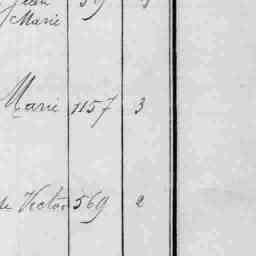 Marie
Marie 1157 3
Victor 569 2